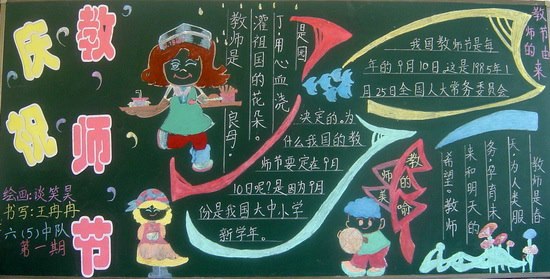 庆祝
教师节
绘画：谈笑昊
书写：王冉冉
六(5)中队
第一期
教师是
灌祖国的花朵。
丁，用心血浇
教师是良母，
是园
教师节的由来
我国教师节是每
年的9月10日。这是1985年1
月25日全国人大常务委员会
决定的。为
什么我国的教
师节要定在9月
10日呢？是因为9月
份是我国大中小学
新学年。
教师的比喻
教师是春
天，为人类服
务，孕育未
来和明天的
希望。教师